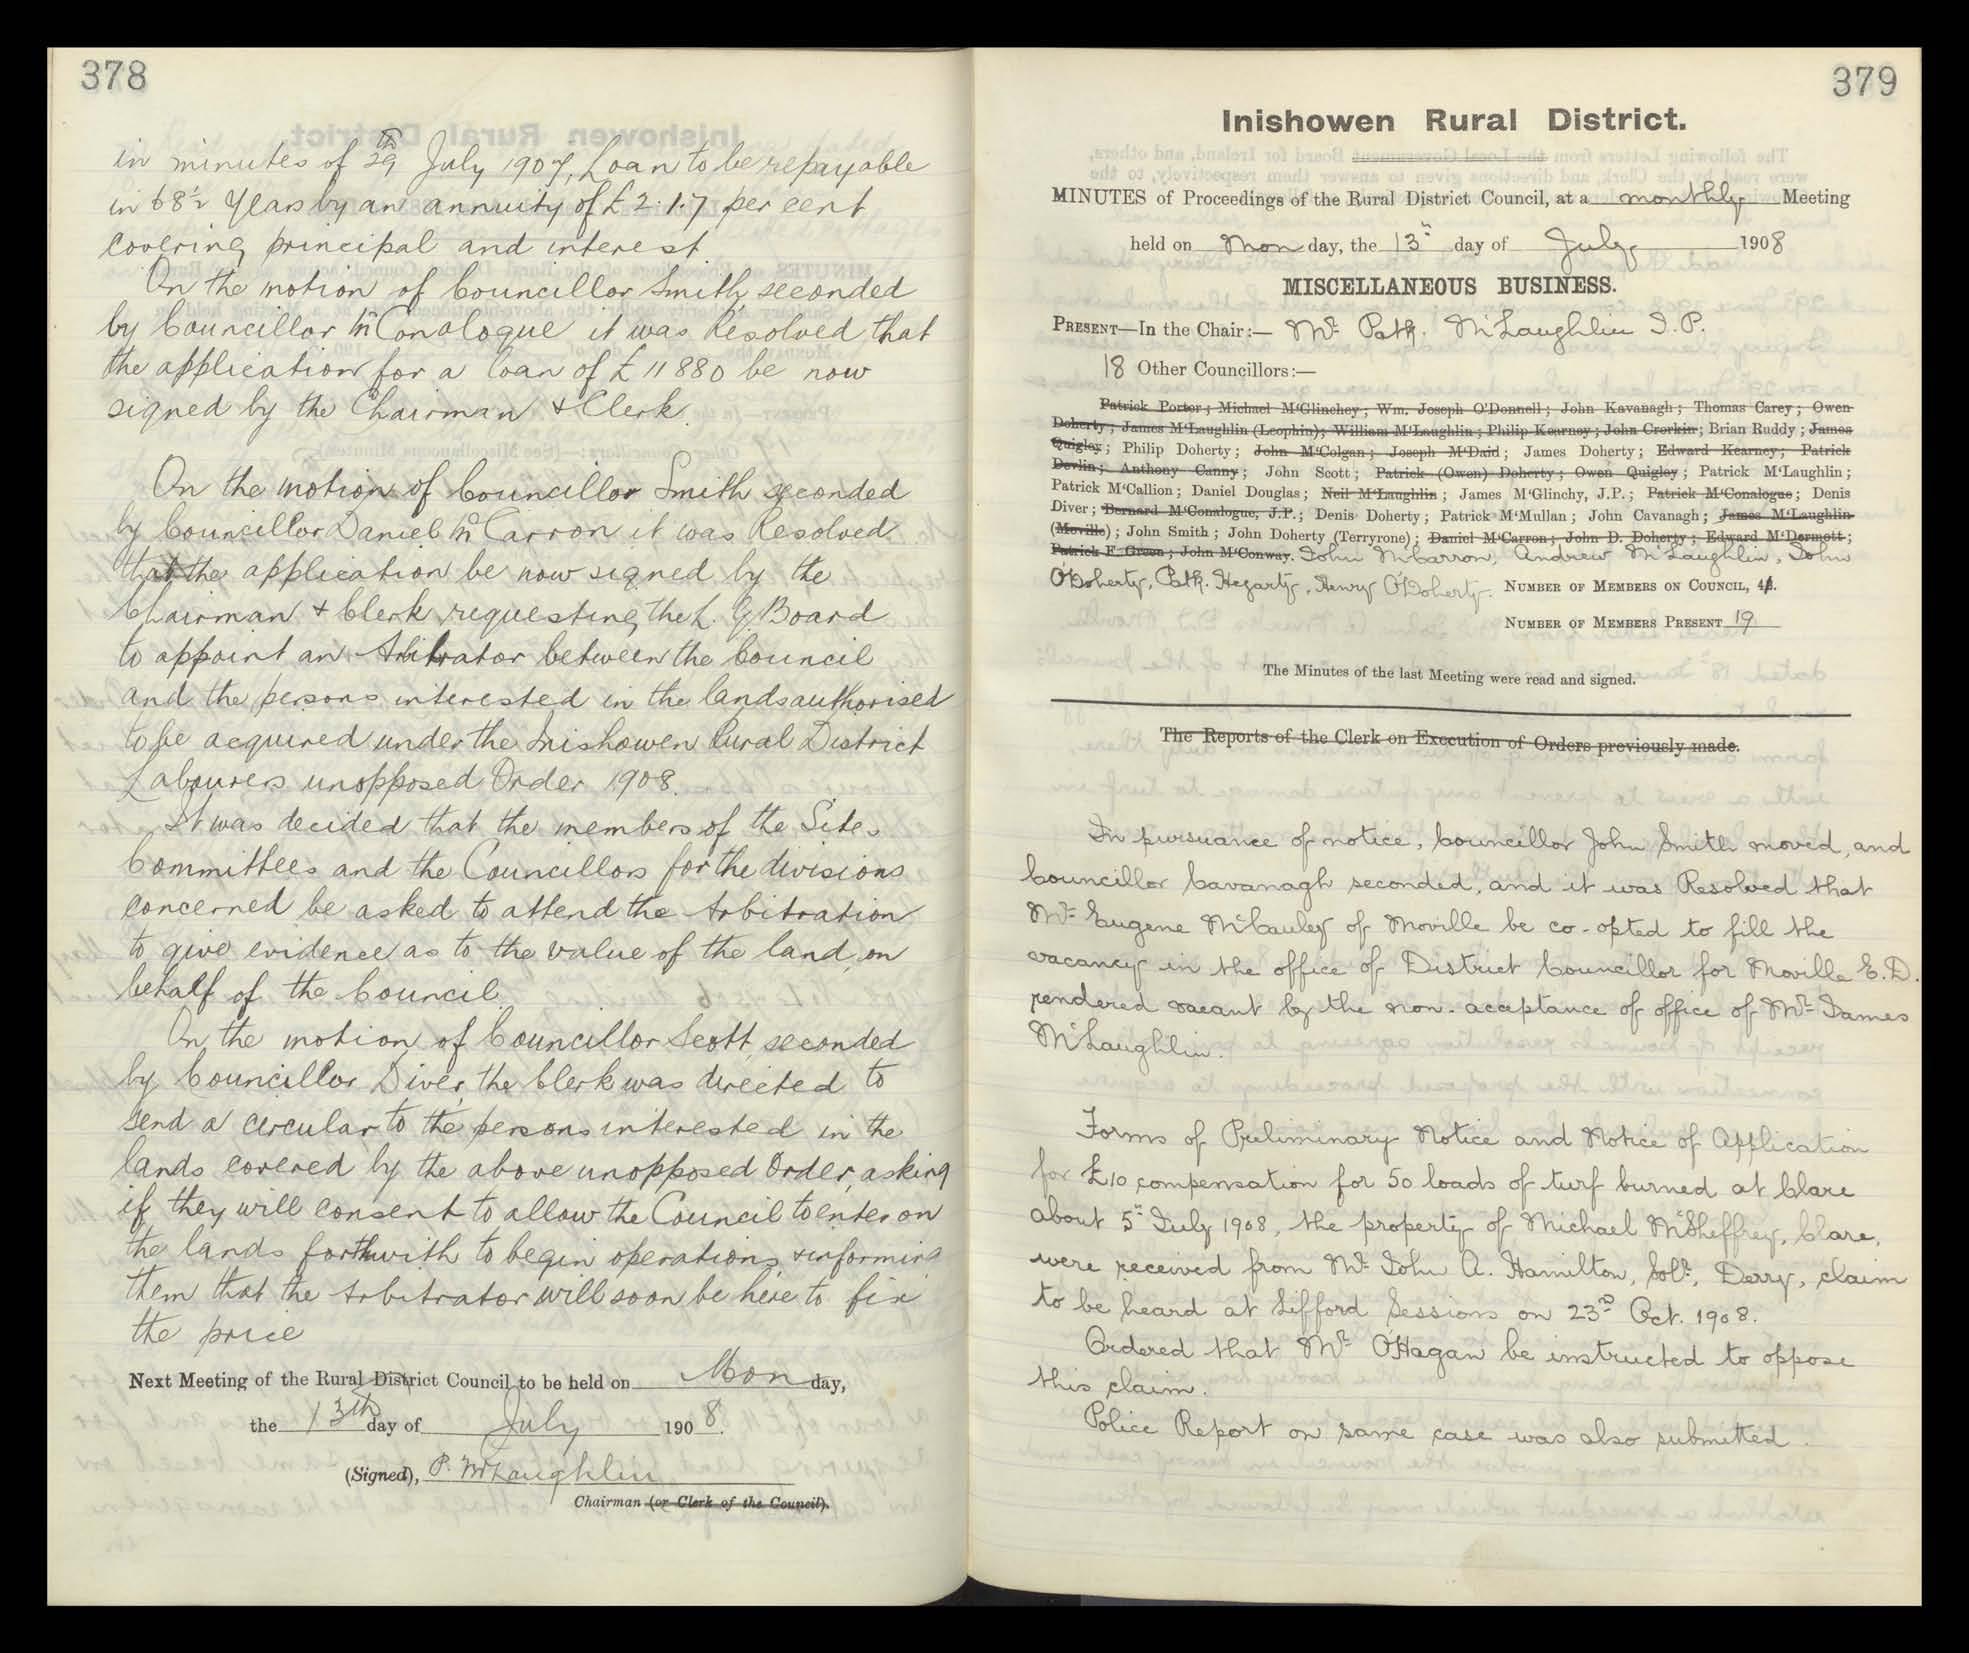 378
in minutes of 29th July 1907, Loan to be repayable
in 68½ Years by an annuity of £2.1.7 per cent
covering principal and interest.
On the motion of Councillor Smith, seconded
by Councillor McConologue it was Resolved that
the application for a loan of £11880 be now
signed by the Chairman & Clerk.
On the motion of Councillor Smith seconded
by Councillor Daniel McCarron it was Resolved
that the application be now signed by the
Chairman & Clerk requesting the L. G. Board
to appoint an Arbitrator between the Council
and the persons interested in the lands authorised
to be acquired under the Inishowen Rural District
Labourers unopposed Order 1908.
It was decided that the members of the Site
Committees and the Councillors for the divisions
concerned be asked to attend the Arbitration
to give evidence as to the value of the land on
behalf of the Council.
On the motion of Councillor Scott, seconded
by Councillor Diver, the Clerk was directed to
send a circular to the persons interested in the
lands covered by the above unopposed Order, asking
if they will consent to allow the Council to enter on
the lands forthwith to begin operations & informing
them that the Arbitrator will soon be here to fix
the price
Next Meeting of the Rural District Council to be held on Monday,
the 13th day of July 1908.
(Signed), P. McLaughlin
Chairman (or Clerk of the Council).
379
Inishowen Rural District.
MINUTES of Proceedings of the Rural District Council, at a monthly Meeting
held on Monday, the 13th day of July 1908
MISCELLANEOUS BUSINESS.
PRESENT—In the Chair:— Mr. Patk. McLaughlin J.P.
18 Other Councillors:—
Patrick Porter; Michael M'Glinchey; Wm. Joseph O'Donnell; John Kavanagh; Thomas Carey; Owen
Doherty; James M'Laughlin (Leophin); William M'Laughlin; Philip Kearney; John Crerkin; Brian Ruddy; James
Quigley; Philip Doherty; John M'Colgan; Joseph M'Daid; James Doherty; Edward Kearney; Patrick
Devlin; Anthony Canny; John Scott; Patrick (Owen) Doherty; Owen Quigley; Patrick M'Laughlin;
Patrick M'Callion; Daniel Douglas; Neil M'Laughlin; James M'Glinchy, J.P.; Patrick M'Conalogue; Denis
Diver; Bernard M'Conalogue, J.P.; Denis Doherty; Patrick M'Mullan; John Cavanagh; James M'Laughlin
(Moville); John Smith; John Doherty (Terryrone); Daniel M'Carron; John D. Doherty; Edward M'Dermott;
Patrick F. Green; John M'Conway. John McCarron, Andrew McLaughlin, John
O'Doherty, Patk. Hegarty, Henry O'Doherty. NUMBER OF MEMBERS ON COUNCIL, 41.
NUMBER OF MEMBERS PRESENT 19
The Minutes of the last Meeting were read and signed.
The Reports of the Clerk on Execution of Orders previously made.
In pursuance of notice, Councillor John Smith moved, and
Councillor Cavanagh seconded, and it was Resolved that
Mr. Eugene McCauley of Moville be co-opted to fill the
vacancy in the office of District Councillor for Moville E.D.
rendered vacant by the non-acceptance of office of Mr. James
McLaughlin.
Forms of Preliminary Notice and Notice of Application
for £10 compensation for 50 loads of turf burned at Clare
about 5th July 1908, the property of Michael McSheffrey, Clare,
were received from Mr. John A. Hamilton, Solr., Derry, claim
to be heard at Lifford Sessions on 23rd Oct. 1908.
Ordered that Mr. O'Hagan be instructed to oppose
this claim.
Police Report on same case was also submitted.